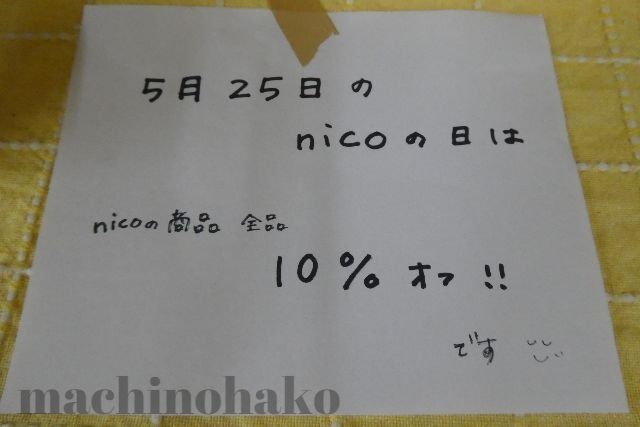 5月25日の
nicoの日は
nicoの商品 全品
10%オフ!!
です
machinohako